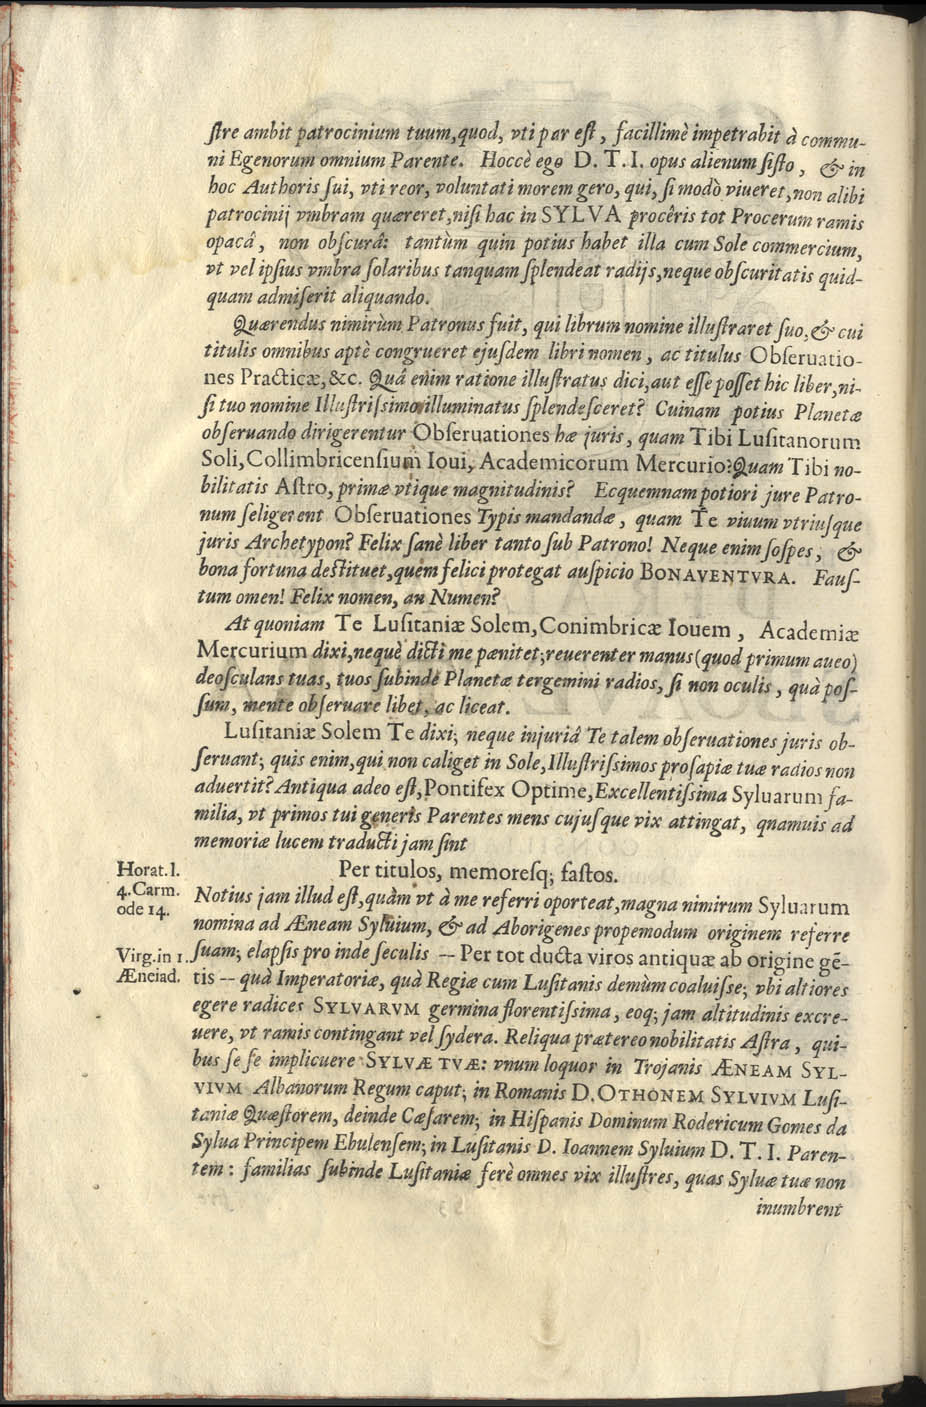 ſtre ambit patrocinium tuum, quod, vti par eſt, facillimè impetrabit à commu-
ni Egenorum omnium Parente. Hoccè ego D. T. I. opus alienum ſiſto, & in
hoc Authoris ſui, vti reor, voluntati morem gero, qui, ſi modò viueret, non alibi
patrocinij vmbram quæreret, niſi hac in SYLVA procêris tot Procerum ramis
opacâ, non obſcurâ: tantùm quin potius habet illa cum Sole commercium,
vt vel ipſius vmbra ſolaribus tanquam ſplendeat radijs, neque obſcuritatis quid-
quam admiſerit aliquando.
Quærendus nimirùm Patronus fuit, qui librum nomine illuſtraret ſuo, & cui
titulis omnibus aptè congrueret ejuſdem libri nomen, ac titulus Obſeruatio-
nes Practicæ, &c. Quâ enim ratione illuſtratus dici, aut eſſe poſſet hic liber, ni-
ſi tuo nomine Illuſtriſsimo illuminatus ſplendeſceret? Cuinam potius Planetæ
obſeruando dirigerentur Obſeruationes hæ juris, quam Tibi Luſitanorum
Soli, Collimbricenſium Ioui, Academicorum Mercurio? Quam Tibi no-
bilitatis Aſtro, primæ vtique magnitudinis? Ecquemnam potiori jure Patro-
num ſeligerent Obſeruationes Typis mandandæ, quam Te viuum vtriuſque
juris Archetypon? Felix ſanè liber tanto ſub Patrono! Neque enim ſoſpes, &
bona fortuna deſtituet, quem felici protegat auſpicio BONAVENTVRA. Fauſ-
tum omen! Felix nomen, an Numen?
At quoniam Te Luſitaniæ Solem, Conimbricæ Iouem, Academiæ
Mercurium dixi, nequè dicti me pænitet; reuerenter manus (quod primum aueo)
deoſculans tuas, tuos ſubinde Planetæ tergemini radios, ſi non oculis, quà poſ-
ſum, mente obſeruare libet, ac liceat.
Luſitaniæ Solem Te dixi; neque injuriâ Te talem obſeruationes juris ob-
ſeruant; quis enim, qui non caliget in Sole, Illuſtriſsimos proſapiæ tuæ radios non
aduertit? Antiqua adeo eſt, Pontifex Optime, Excellentiſsima Syluarum fa-
milia, vt primos tui generis Parentes mens cujuſque vix attingat, qnamuis ad
memoriæ lucem traducti jam ſint
Per titulos, memoreſq; faſtos.
Horat. l.
4. Carm.
ode 14.
Notius jam illud eſt, quàm vt à me referri oporteat, magna nimirum Syluarum
nomina ad Æneam Syluium, & ad Aborigenes propemodum originem referre
Virg. in 1.
Æneiad.
ſuam; elapſis pro inde ſeculis -- Per tot ducta viros antiquæ ab origine gẽ-
tis -- quà Imperatoriæ, quà Regiæ cum Luſitanis demùm coaluiſse; vbi altiores
egere radices SYLVARVM germina florentiſsima, eoq; jam altitudinis excre-
uere, vt ramis contingant vel ſydera. Reliqua prætereo nobilitatis Aſtra, qui-
bus ſe ſe implicuere SYLVÆ TVÆ: vnum loquor in Trojanis ÆNEAM SYL-
VIVM Albanorum Regum caput; in Romanis D. OTHONEM SYLVIVM Luſi-
taniæ Quæſtorem, deinde Cæſarem; in Hiſpanis Dominum Rodericum Gomes da
Sylua Principem Ebulenſem; in Luſitanis D. Ioannem Syluium D. T. I. Paren-
tem: familias ſubinde Luſitaniæ ferè omnes vix illuſtres, quas Syluæ tuæ non
inumbrent